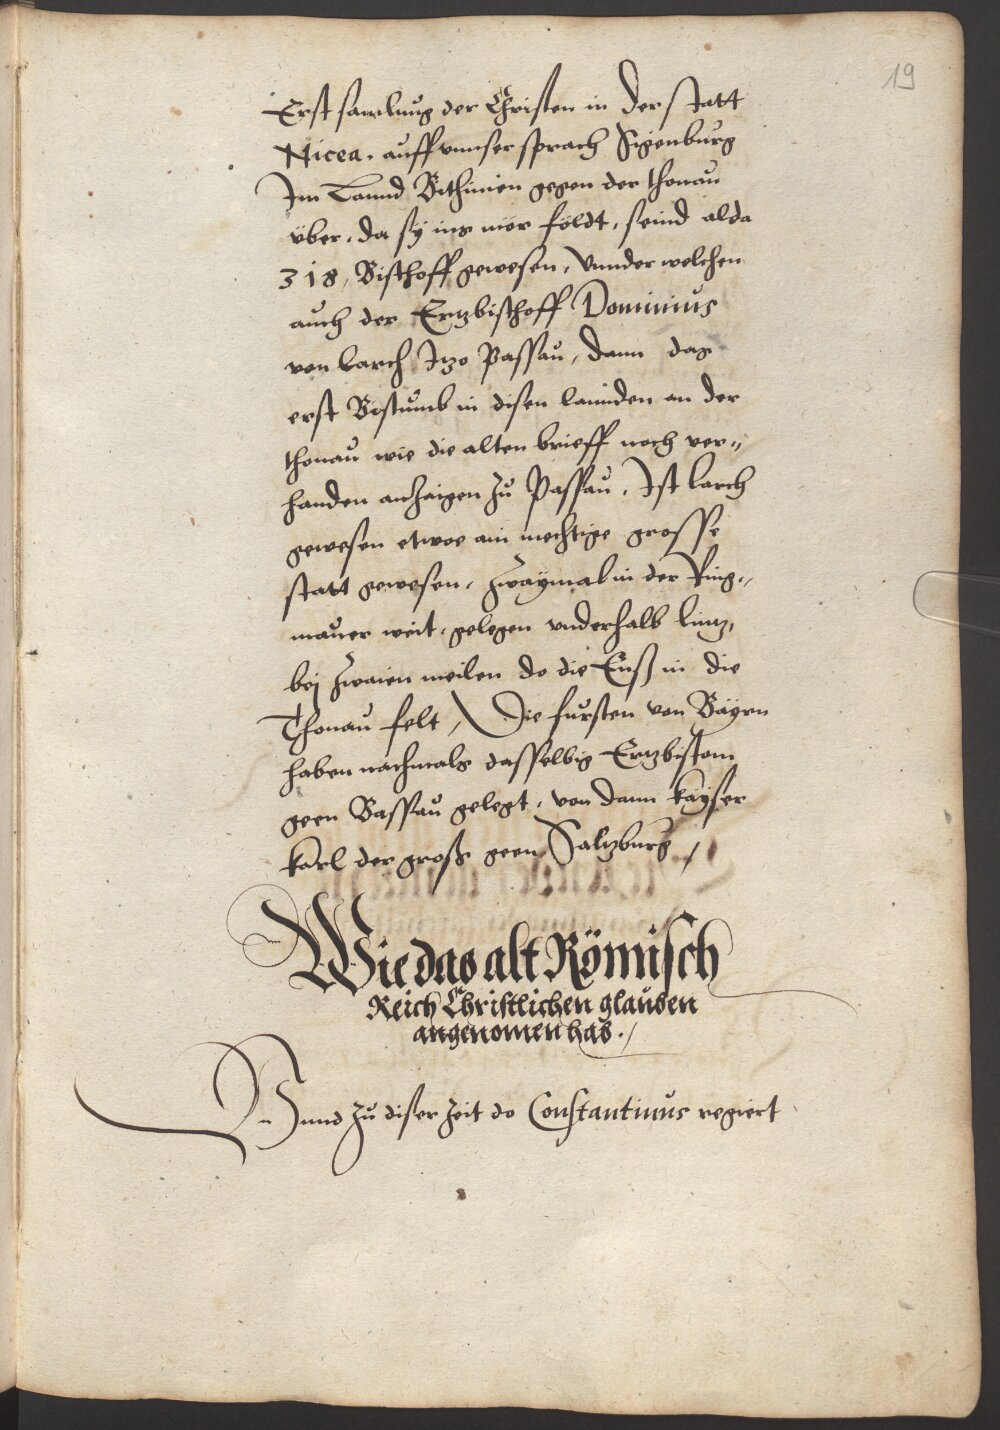 19
Erst samlung der Christen in der statt
Nicea. auff vnnser sprach Sigenburg
Im Lannd Bithinien gegen der thonau
über, da sÿ ins mör földt, seind alda
318, Bischoff gewesen, Vnnder welchen
auch der Ertzbischoff Dominius
von larch Itzo Passau, dann das
erst Bistumb in disen lannden an der
thonau wie die alten brieff noch ver„
handen anzaigen zu Passau. Ist larch
gewesen etwoe ain mechtige grosse
statt gewesen, zwaÿmal in der Ring„
mauer weit, gelegen vnderhalb lintz,
beÿ zwaien meilen do die Enß in die
Thonau felt / Die fursten von Baÿrn
haben nachmals dasselbig Ertzbistom
geen Bassau gelegt, von dann kaÿser
karl der groß geen Saltzburg /
Wie das alt Römisch
Reich Christlichen glauben
angenomen hab. /
Vnnd zu diser zeit do Constantinus regiert